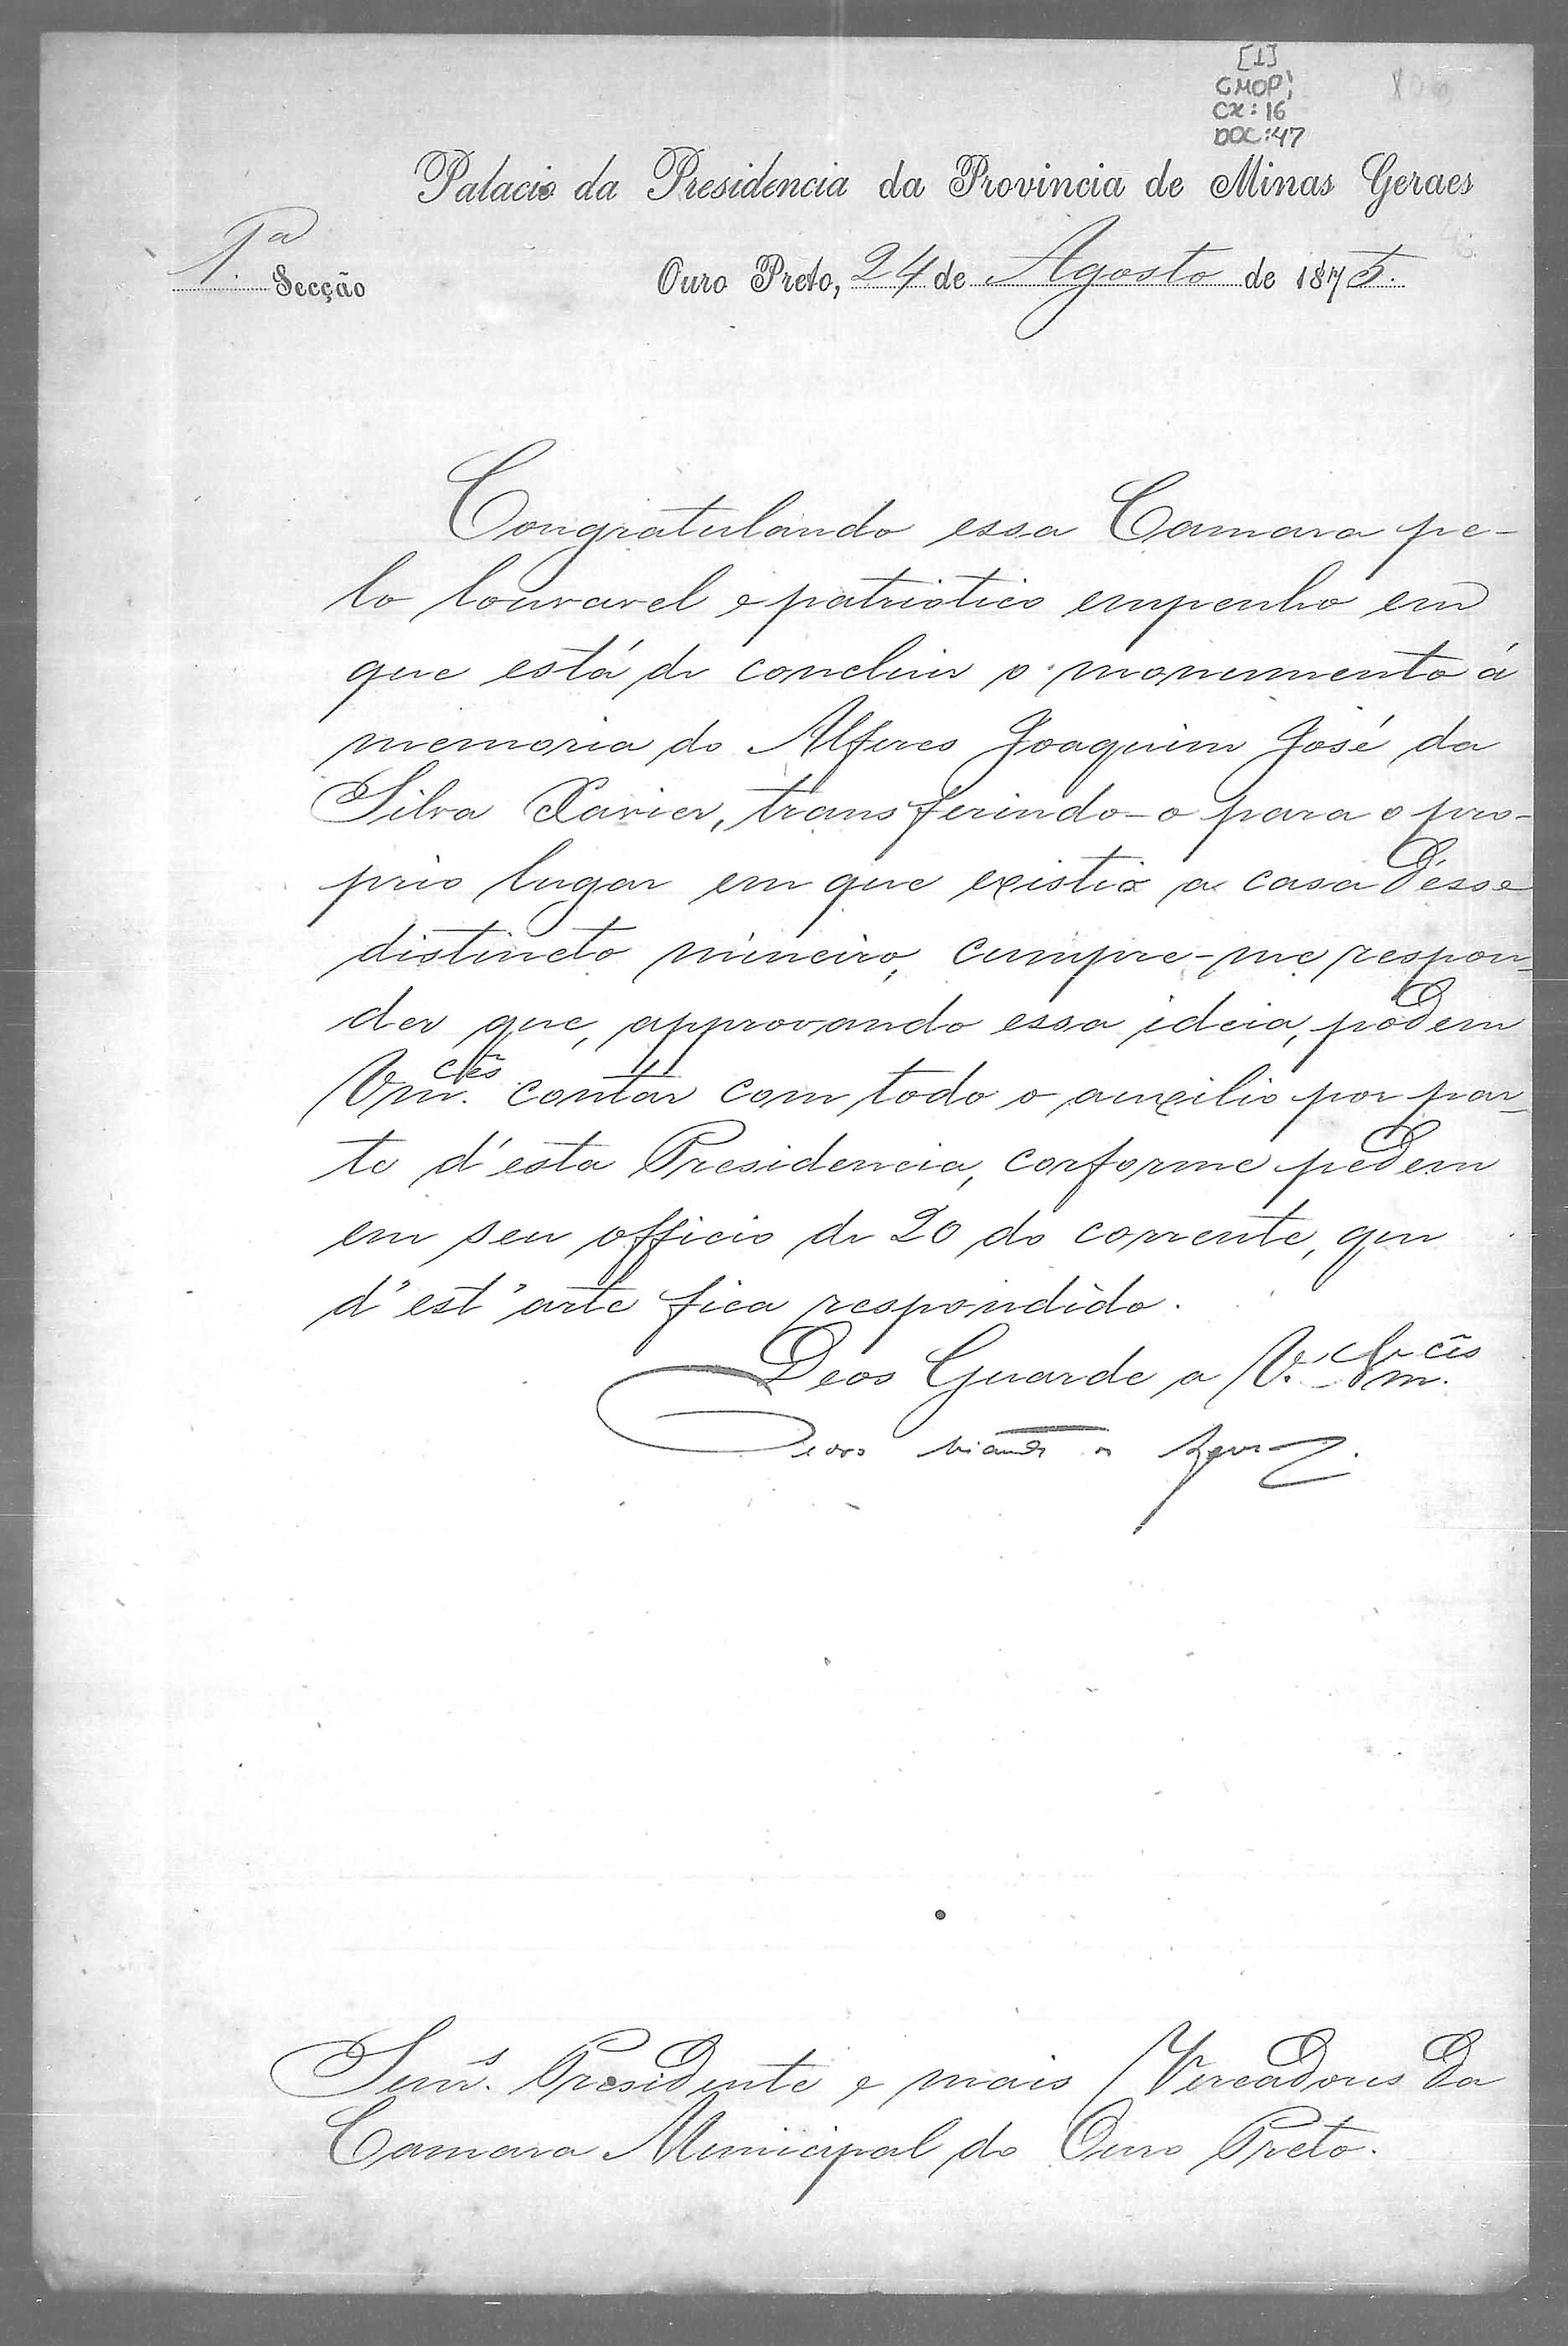 [1]
CMOP;
CX: 16
DOC: 47
Palacio da Presidencia da Provincia de Minas Geraes
1.ª Secção
Ouro Preto, 24 de Agosto de 1875.
Congratulando essa Camara pe-
lo louvavel e patriotico empenho em
que está de concluir o monumento á
memoria do Alferes Joaquim José da
Silva Xavier, transferindo-o para o pro-
prio lugar em que existio a casa d'esse
distincto mineiro, cumpre-me respon-
der que, approvando essa ideia, podem
Vm.cês contar com todo o auxilio por par-
te d'esta Presidencia, conforme pedem
em seu officio de 20 do corrente, que
d'est'arte fica respondido.
Deos Guarde a V. M.cês
Senr.s Presidente e mais Vereadores da
Camara Municipal do Ouro Preto.